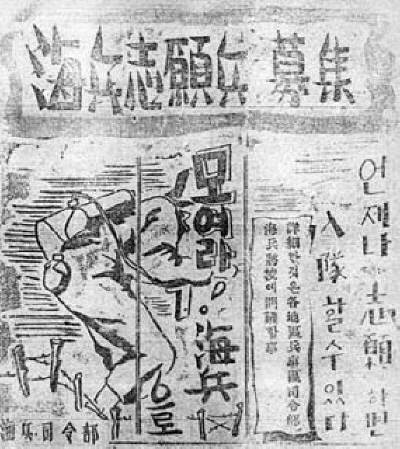 海兵志願兵 募集
언제나 志願하면
入隊할수있다
詳細한것은各地區兵事區司令部
모여라 海兵으로
海兵司令部